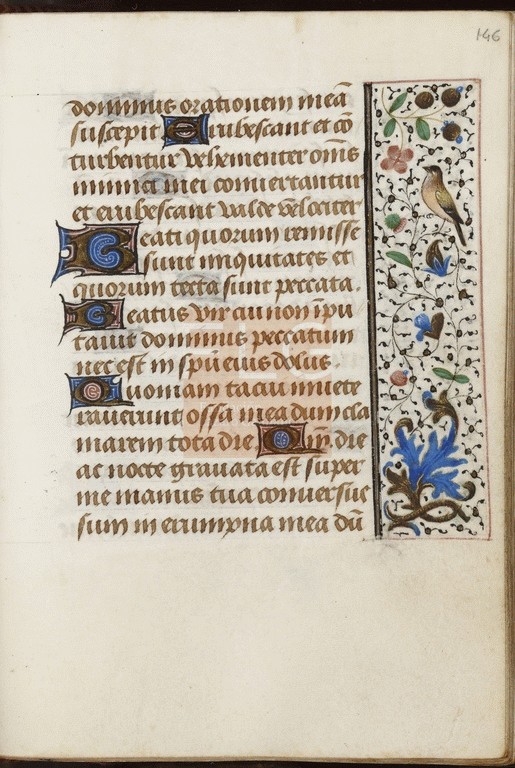 146
dominus orationem meā
suscepit Erubescant et cō
turbentur vehementer om̄s
inimici mei convertantur
et erubescant valde velociter
Beati quorum remisse
sunt iniquitates et
quorum tecta sunt peccata.
Beatus vir cui non īpu
tavit dominus peccatum
nec est in spū eius dolus.
Quoniam tacui invete
raverunt ossa mea dum cla
marem tota die Qm̄ die
ac nocte gravata est super
me manus tua conversus
sum in erumpna mea dū